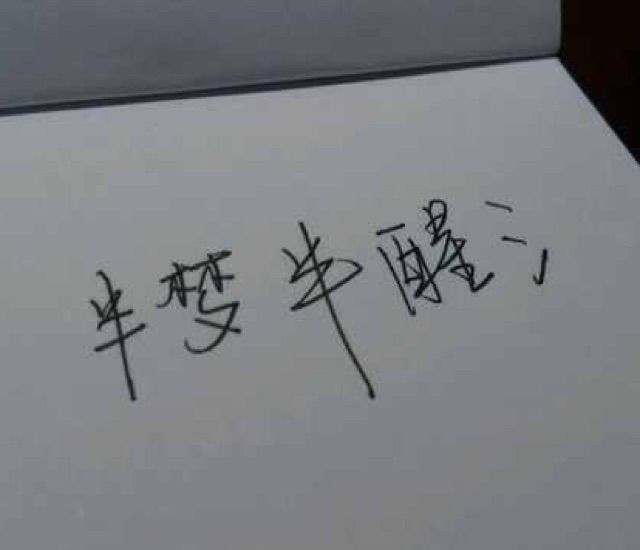 半梦半醒;